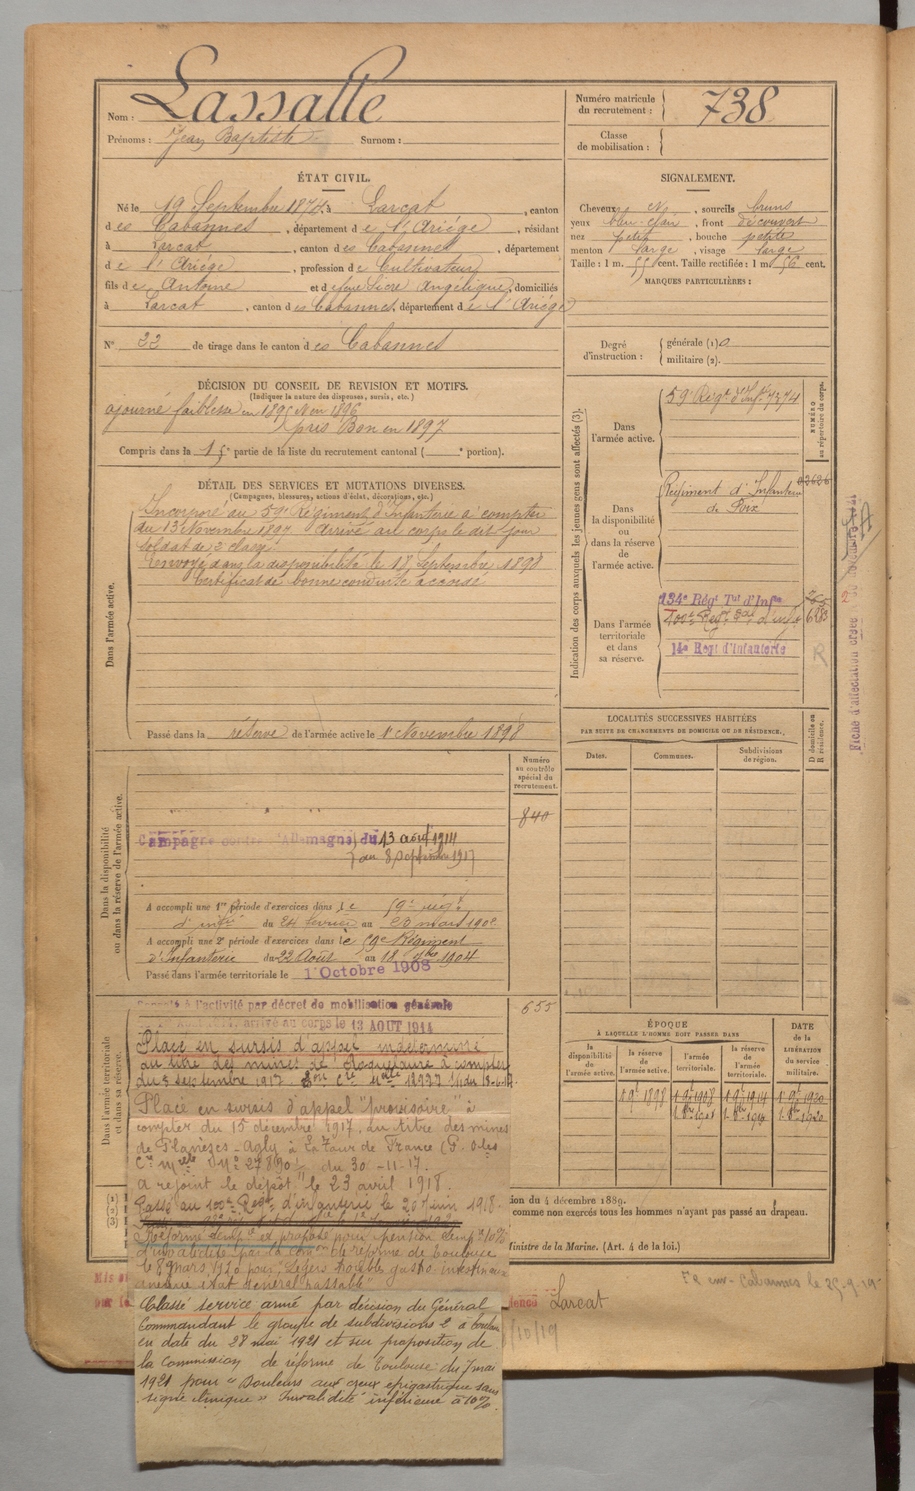 Nom : Lassalle
Prénoms : Jean Baptiste Surnom :
Numéro matricule
du recrutement : 738
Classe
de mobilisation :
ÉTAT CIVIL.
Né le 19 Septembre 1874, à Larcat, canton
des Cabannes, département de l'Ariège, résidant
à Larcat, canton des Cabannes, département
de l'Ariège, profession de Cultivateur
fils de Antoine et de feue Sicre Angélique, domiciliés
à Larcat, canton des Cabannes, département de l'Ariège
N° 22 de tirage dans le canton des Cabannes
SIGNALEMENT.
Cheveux, sourcils bruns
yeux bleu-clair, front découvert
nez petit, bouche petite
menton large, visage large
Taille : 1 m. 55 cent. Taille rectifiée : 1 m. 56 cent.
MARQUES PARTICULIÈRES :
Degré
d'instruction :
générale (1) 0
militaire (2).
DÉCISION DU CONSEIL DE REVISION ET MOTIFS.
(Indiquer la nature des dispenses, sursis, etc.)
ajourné faiblesse en 1895 et en 1896
pris Bon en 1897
Compris dans la 1e partie de la liste du recrutement cantonal ( e portion).
DÉTAIL DES SERVICES ET MUTATIONS DIVERSES.
(Campagnes, blessures, actions d'éclat, décorations, etc.)
Dans l'armée active.
Incorporé au 59e Régiment d'Infanterie à compter
du 13 Novembre 1897 arrivé au corps le dit jour
soldat de 2e classe
Envoyé dans la disponibilité le 18 Septembre 1898
Certificat de bonne conduite accordé
Passé dans la réserve de l'armée active le 1er Novembre 1898
Indication des corps auxquels les jeunes gens sont affectés (3).
NUMÉRO
au répertoire du corps.
Dans
l'armée active.
59e Régt d'Inf. 7374
Dans
la disponibilité
ou
dans la réserve
de
l'armée active.
Régiment d'Infanterie
de Foix
Dans l'armée
territoriale
et dans
sa réserve.
134e Régt Tal d'Infie
14e Regt d'Infanterie
R
Fiche d'affectation
LOCALITÉS SUCCESSIVES HABITÉES
PAR SUITE DE CHANGEMENTS DE DOMICILE OU DE RÉSIDENCE.
Dates.
Communes.
Subdivisions
de région.
D domicile ou
R résidence.
Dans la disponibilité
ou dans la réserve de l'armée active.
Numéro
au contrôle
spécial du
recrutement.
840
Campagne contre l'Allemagne du 13 août 1914
au 8 Septembre 1917
A accompli une 1re période d'exercices dans le 59e régt
d'infie du 24 février au 23 mars 1902
A accompli une 2e période d'exercices dans le 59e Régiment
d'Infanterie du 22 Août au 18 7bre 1904
Passé dans l'armée territoriale le 1er Octobre 1908
Dans l'armée territoriale
et dans sa réserve.
655
Rappelé à l'activité par décret de mobilisation générale
arrivé au corps le 13 AOUT 1914
Placé en sursis d'appel indéterminé
au titre des mines de Roquelaure à compter
du 5 septembre 1917.
Placé en sursis d'appel "provisoire" à
compter du 15 décembre 1917, au titre des mines
de Planèzes-Agly à La Tour de France
du 30-11-17.
a rejoint le dépôt le 23 avril 1918.
Passé au 100e Regt d'infanterie le 20 juin 1918.
Réformé tempre et proposé pour pension tempre 10%
d'invalidité par la Comon de réforme de Toulouse
le 8 mars 1920 pour "Légers troubles gastro intestinaux
anciens état général passable"
Classé service armé par décision du Général
Commandant le groupe de subdivisions 2 à Toulouse
en date du 28 mai 1921 et sur proposition de
la Commission de réforme de Toulouse du 7 mai
1921 pour "Douleurs aux creux épigastrique sans
signe clinique" Invalidité inférieure à 10%.
ÉPOQUE
À LAQUELLE L'HOMME DOIT PASSER DANS
la
disponibilité
de
l'armée active.
la réserve
de
l'armée active.
l'armée
territoriale.
la réserve
de l'armée
territoriale.
DATE
de la
LIBÉRATION
du service
militaire.
1 9bre 1898
ion du 4 décembre 1889.
comme non exercés tous les hommes n'ayant pas passé au drapeau.
Ministre de la Marine. (Art. 4 de la loi.)
Larcat
/10/19